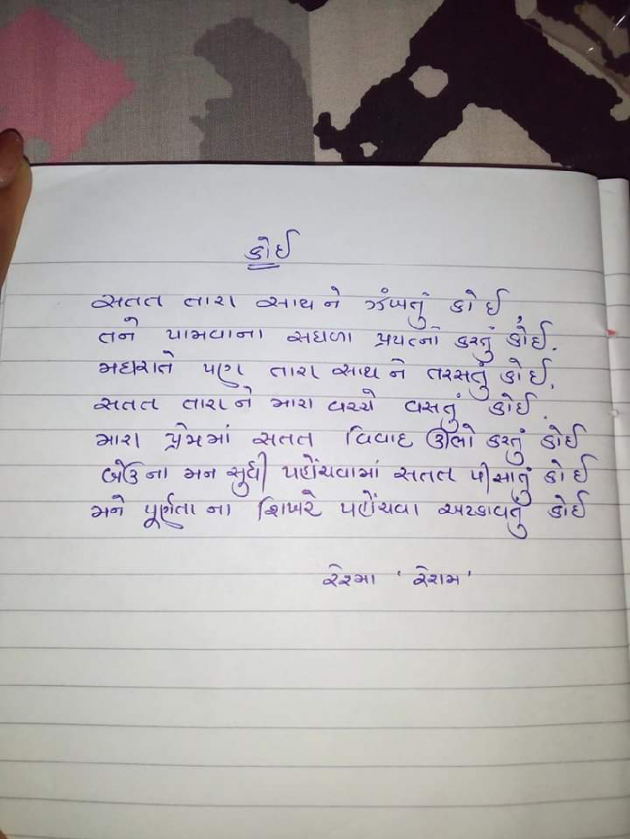 કોઈ
સતત તારા સાથ ને ઝંખતું કોઈ,
તને પામવાના સઘળા પ્રયત્નો કરતું કોઈ.
મધરાતે પણ તારા સાથ ને તરસતું કોઈ,
સતત તારા ને મારા વચ્ચે વસતું કોઈ.
મારા પ્રેમમાં સતત વિવાદ ઊભો કરતું કોઈ
બેઉ ના મન સુધી પહોંચવામાં સતત પીસાતું કોઈ
મને પૂર્ણતા ના શિખરે પહોંચવા અટકાવતું કોઈ
રેશ્મા ' રેશમ '